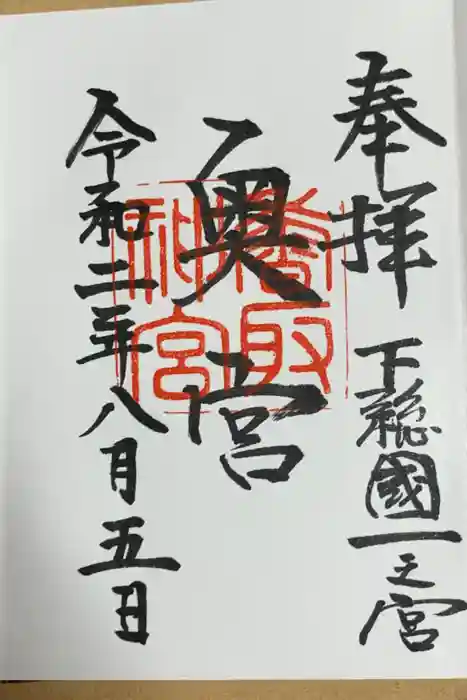 奉拝 下総國一之宮
奥宮
香取神宮
令和二年八月五日